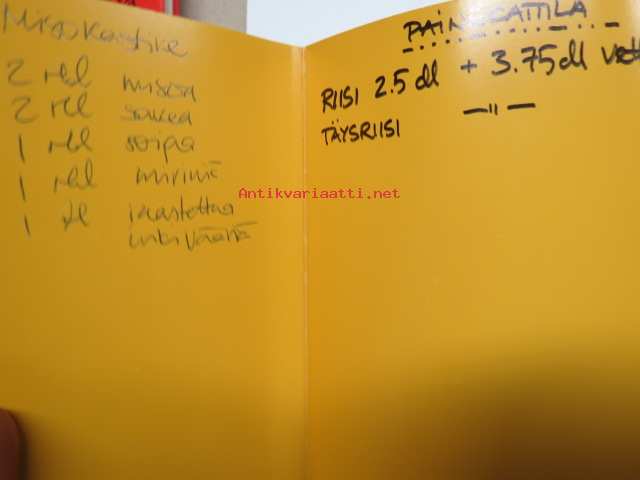 Misokastike
2 rkl misoa
2 rkl sakea
1 rkl soijaa
1 rkl miriniä
1 tl raastettua
inkivääriä
PAINEKATTILA
RIISI 2.5 dl + 3.75 dl vettä
TÄYSRIISI —"—
Antikvariaatti.net